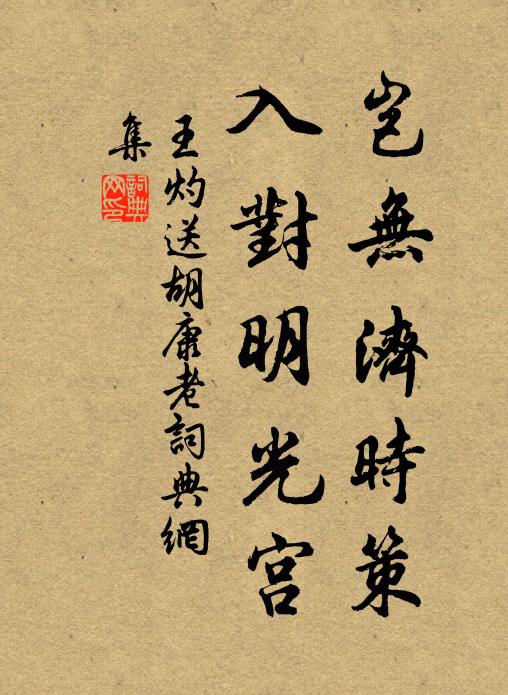 岂無濟時策
入對明光宫
王灼送胡康老詞典網
集
詞典網印